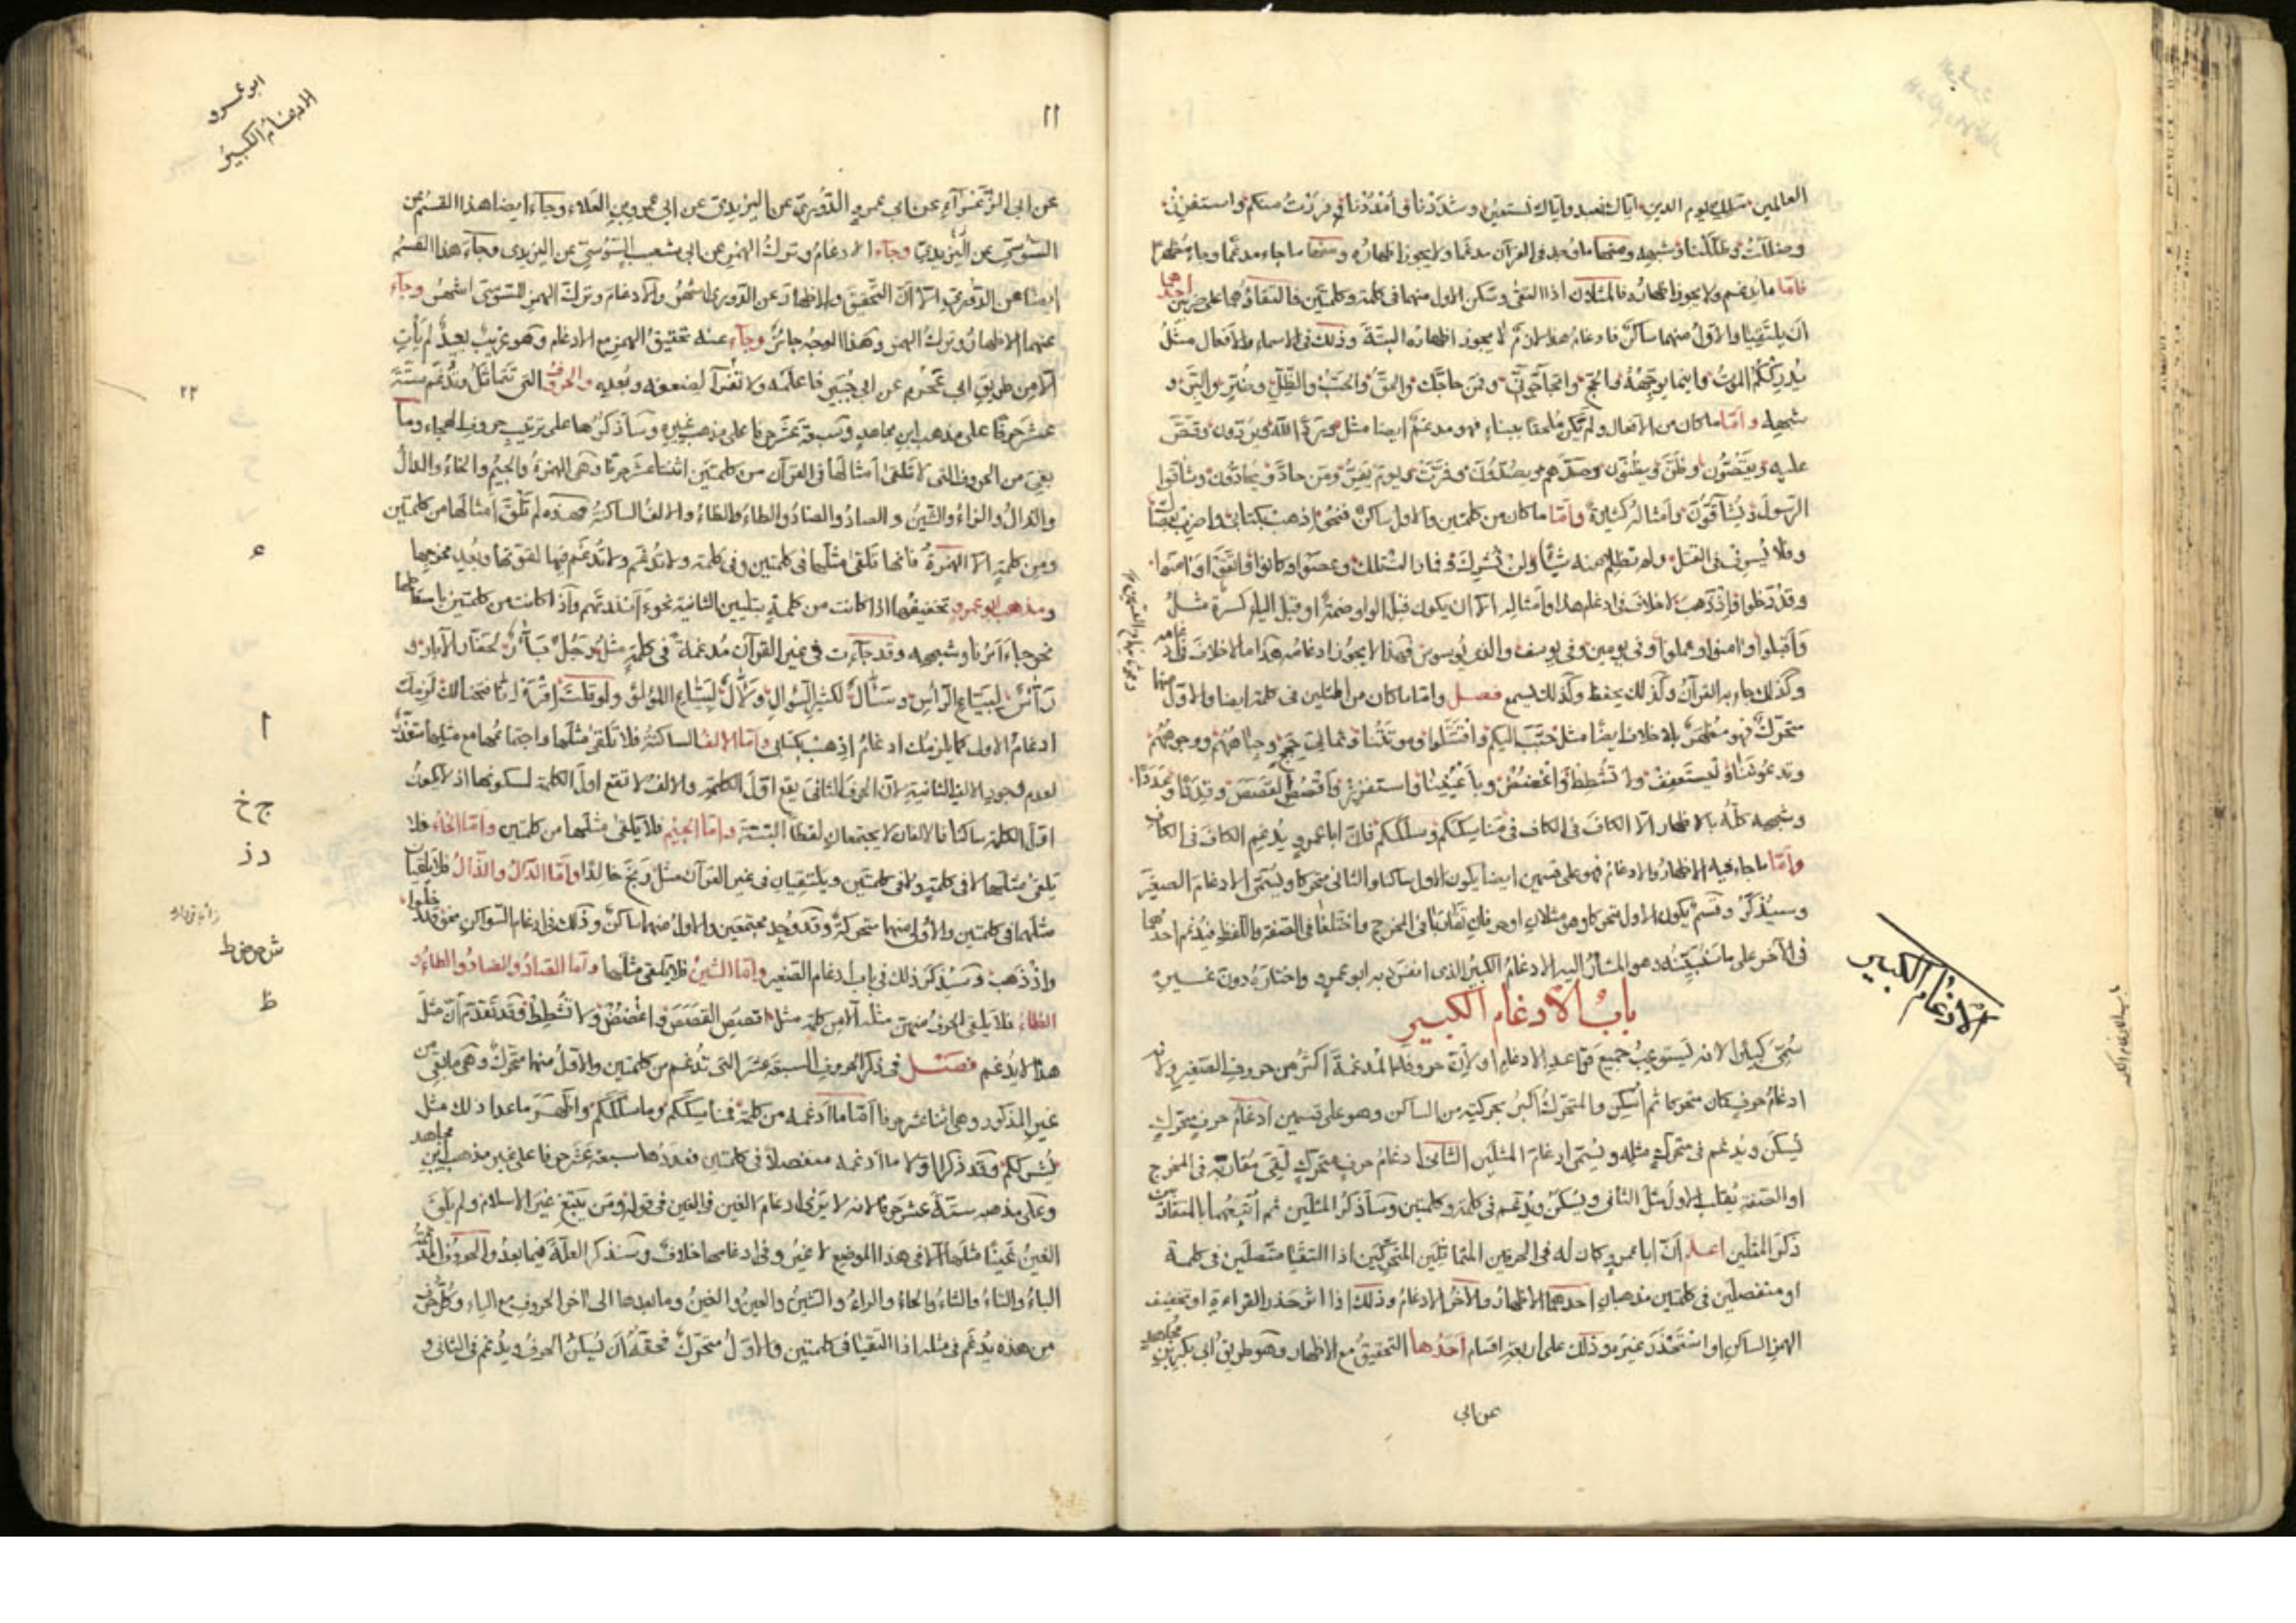 العالمين ملك يوم الدين اياك نعبد واياك نستعين وشددنا وامددنا ورددت منكم واستفزز
وضللت وظللنا وشبهه ومنها ما وجد في القرآن مدغما ولا يجوز اظهاره ومنها ما جاء مدغما وجاء مظهرا
فاما ما يدغم ولا يجوز اظهاره فالمثلان اذا التقيا وسكن الاول منهما في كلمة وكلمتين فالتقاؤهما على ضربين احدهما
ان يلتقيا والاول منهما ساكن فادغام هذا لازم لا يجوز اظهاره البتة وذلك في الاسماء والافعال مثل
يدرككم الموت واينما يوجهه والحج واتحاجوني ومن حاجك والحق والحب والظل و
شبهه واما ما كان من الافعال ولم يكن ملحقا ببناء فهو مدغم ايضا مثل
عليه ويغضون وظن ويظنون وصدهم ويصدون ومن حاد ويحادون وشاقوا
الرسول ويشاقون وامثاله كثيرة واما ما كان من كلمتين والاول ساكن فنحو اذهب بكتابي واضرب بعصاك
وفلا يسرف في القتل ولم تظلم منه شيئا ولن نشرك وعصوا وكانوا واتقوا وآمنوا
وقد دخلوا واذ ذهب لا خلاف في ادغام هذا وامثاله الا ان يكون قبل الواو ضمة او قبل الياء كسرة مثل
واقبلوا و آمنوا وعملوا وفي يومين وفي يوسف والذي يوسوس فهذا لا يجوز ادغامه هذا ما لا خلاف فيه
وكذلك جاء به القرآن وكذلك يحفظ وكذلك يسمع فصل واما ما كان من المثلين في كلمة ايضا والاول منهما
متحرك فهو مظهر بلا خلاف ايضا مثل حبب اليكم واقتتلوا وموتتنا وثماني حجج وجباههم ووجوههم
وتدعوننا وليستعفف ولا تشطط واغضض وباعيننا واستفزز واقصص القصص وقددا وعددا
وشبهه كله بالاظهار الا الكاف في الكاف في مناسككم وسلككم فان ابا عمرو يدغم الكاف في الكاف
واما ما جاء فيه الاظهار والادغام فهو على قسمين ايضا يكون الاول ساكنا والثاني متحركا ويسمى الادغام الصغير
وسيذكر وقسم يكون الاول متحركا وهو مثلان او حرفان تقاربا في المخرج واختلفا في الصفة واللفظ فيدغم احدهما
في الآخر على ما سنبينه وهو المشار اليه الادغام الكبير الذي انفرد به ابو عمرو واختاره دون غيره
باب الادغام الكبير
سمي كبيرا لانه يستوعب جميع قواعد الادغام او لان حروفه المدغمة اكثر من حروف الصغير ولان
ادغام حرف كان متحركا ثم اسكن والمتحرك اكبر بحركته من الساكن وهو على قسمين ادغام حرف متحرك
يسكن ويدغم في متحرك مثله ويسمى ادغام المثلين الثاني ادغام حرف متحرك لقي مقاربه في المخرج
او الصفة يقلب الاول مثل الثاني ويسكن ويدغم في كلمة وكلمتين وسأذكر المثلين ثم اتبعهما بالمتقاربين
ذكر المثلين اعلم ان ابا عمرو كان له في الحرفين المتماثلين المتحركين اذا التقيا متصلين في كلمة
او منفصلين في كلمتين مذهبان احدهما الاظهار والآخر الادغام وذلك اذا اثر حدر القراءة او تخفيف
الهمز الساكن او استحدر غيره وذلك على اربعة اقسام احدها التحقيق مع الاظهار وهو طريق ابي بكر بن مجاهد
عن ابي
الادغام الكبير
١١
ابو عمرو
الادغام الكبير
عن ابي الزعراء عن ابي عمرو الدوري عن اليزيدي عن ابي عمرو بن العلاء وجاء ايضا هذا القسم عن
السوسي عن اليزيدي وجاء الادغام وترك الهمز عن ابي شعيب السوسي عن اليزيدي وجاء هذا القسم
ايضا عن الدوري الا ان التحقيق والاظهار عن الدوري اشهر والادغام وترك الهمز للسوسي اشهر وجاء
عنهما الاظهار وترك الهمز وهذا الوجه جائز وجاء عنه تحقيق الهمز مع الادغام وهو غريب بعيد لم يأت
الا من طريق ابي عن ابي فاعلمه ولا تقرأ لضعفه وبعده والحروف التي تتماثل وتدغم ستة
عشر حرفا على مذهب ابن مجاهد وسبعة عشر حرفا على مذهب غيره وسأذكرها على ترتيب حروف الهجاء وما
بقي من الحروف التي لا تلقى امثالها في القرآن من كلمتين اثنتا عشر حرفا وهي الهمزة والجيم والخاء والدال
والذال والزاء والشين والصاد والضاد والطاء والظاء والالف الساكنة فهذه لم تلق امثالها من كلمتين
ومن كلمة الا الهمزة فانها تلقى مثلها في كلمتين وفي كلمة ولا تدغم ولا تدغم فيها لقوتها وبعد مخرجها
ومذهب ابو عمرو تخفيفها اذا كانت من كلمة بتليين الثانية نحو ءانذرتهم واذا كانت من كلمتين باسقاطها
نحو جاء امرنا وشبهه وقد جاءت في غير القرآن مدغمة في كلمة مثل رجل
رآس لبياع الرأس وسآل لكثير السؤال ولآل لبياع اللؤلؤ ولو قلت اقرأ آية لزمك
ادغام الاول كما يلزمك ادغام اذهب بكتابي واما الالف الساكنة فلا تلقى مثلها واجتماعها مع مثلها متعذر
لعدم وجود الالف الثانية لان الحرف الثاني يقع اول الكلمة والالف لا تقع اول الكلمة لسكونها اذ لا يكون
اول الكلمة ساكنا فالالفان لا يجتمعان لفظا البتة واما الجيم فلا يلقى مثلها من كلمتين واما الخاء فلا
تلقى مثلها لا في كلمة ولا في كلمتين ويلتقيان في غير القرآن مثل وبخ خالدا واما الدال والذال فلا يلقيان
مثلهما في كلمتين والاول منهما متحركة وقد وجد مجتمعين والاول منهما ساكن وذلك في ادغام السواكن نحو وقد دخلوا
واذ ذهب وسيذكر ذلك في باب ادغام الصغير واما الشين فلا يلقى مثلها واما الصاد والضاد والطاء و
الظاء فلا يلقى الحرف منهن مثله الا من كلمة مثل القصص واغضض ولا تشطط وقد تقدم ان مثل
هذا لا يدغم فصل في ذكر الحروف السبعة عشر التي تدغم من كلمتين والاول منها متحرك وهي ما بقي من
غير المذكور وهي اثنا عشر حرفا اما ما ادغمه من كلمة فمناسككم وما سلككم واظهر ما عدا ذلك مثل
بشرككم وقد ذكر اولا ما ادغمه منفصلا في كلمتين فعددها سبعة عشر حرفا على غير مذهب ابن مجاهد
وعلى مذهبه ستة عشر حرفا لانه لا يرى ادغام الغين في الغين في قوله ومن يبتغ غير الاسلام ولم يلق
الغين غينا مثلها الا في هذا الموضع لا غير وفي ادغامها خلاف وسنذكر العلة فيما بعد والحروف المدغمة
الباء والتاء والثاء والحاء والراء والسين والعين والغين وما بعدها الى اخر الحروف مع الياء وكل حرف
من هذه يدغم في مثله اذا التقيا في كلمتين والاول متحرك فحقه ان يسكن الحرف ويدغم في الثاني و
٢٢
ء
ا
ج خ
د ذ
ش ص ض ط
ظ